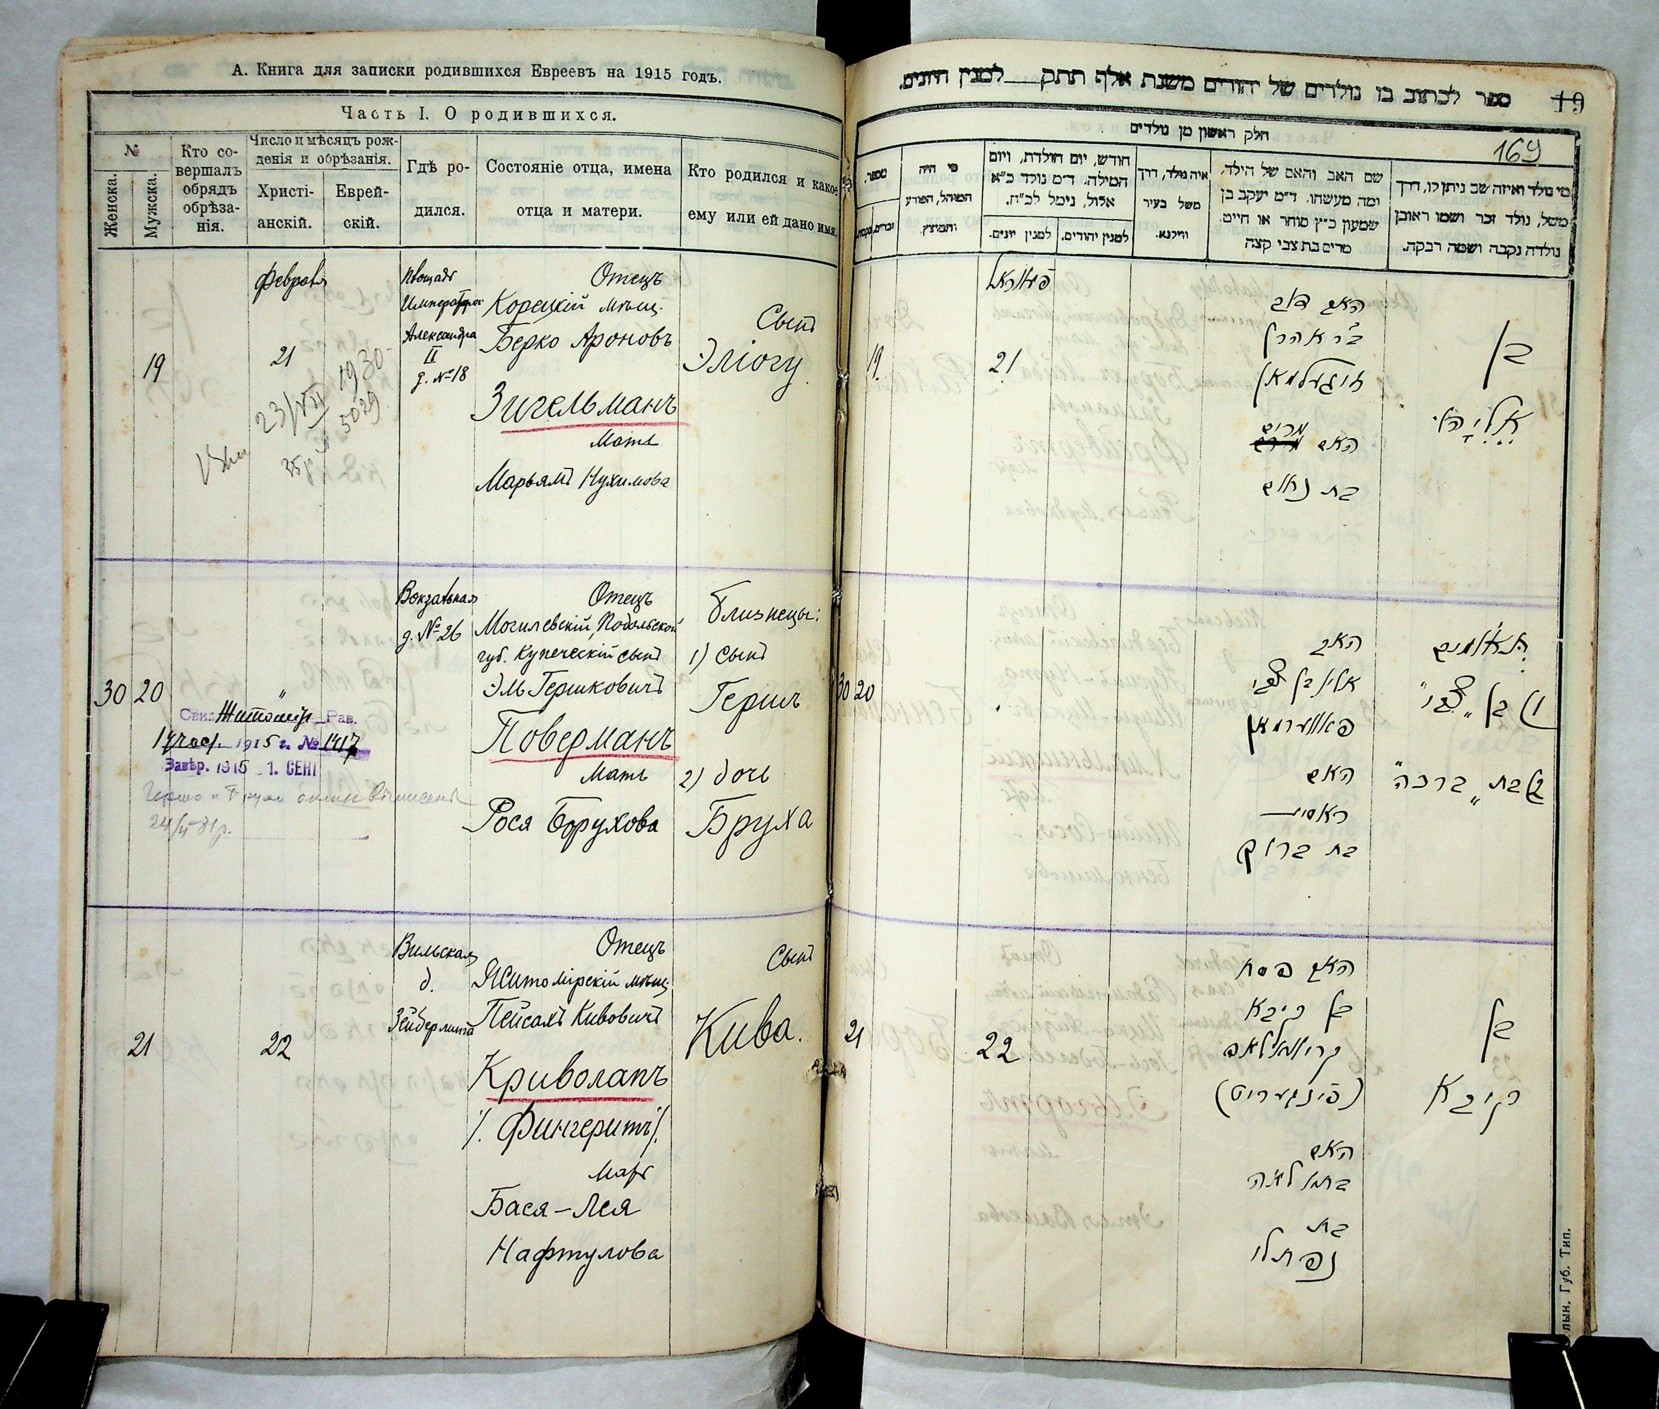 А. Книга для записки родившихся Евреевъ на 1915 годъ.
Часть I. О родившихся.
№
Женска.
Мужска.
Кто со-
вершалъ
обрядъ
обрѣза-
нія.
Число и мѣсяцъ рож-
денія и обрѣзанія.
Христі-
анскій.
Еврей-
скій.
Гдѣ ро-
дился.
Состояніе отца, имена
отца и матери.
Кто родился и какое
ему или ей дано имя.
19
Февраля
21
23/VII 1930
5029
Площадь
Императора
Александра
II
д. №18
Отецъ
Корецкій мѣщ.
Берко Ароновъ
Зигельманъ
Мать
Марьямъ Нухимова
Сынъ
Эліогу
30 20
"
Свид. Житомир. Рав.
1915 г. № 1417
Завѣр. 1915 1. СЕН
Вокзальная
д. № 26
Отецъ
Могилевскій, Подольской
губ. Купеческій сынъ
Эль Гершковичъ
Поверманъ
Мать
Рося Борухова
Близнецы:
1) Сынъ
Гершъ
2) дочь
Бруха
21
22
Вильская
д.
Зейберлита
Отецъ
Житомірскій мѣщ.
Пейсахъ Кивовичъ
Криволапъ
/. Фингеритъ /.
Мать
Бася-Лея
Нафтулова
Сынъ
Кива.
ספר לכתוב בו נולדים של יהודים משנת אלף תתק למנין היונים.
19
169
חלק ראשון מן נולדים
מספר,
מי היה
המוהל, הפורע
והמוצץ.
חודש, יום הולדת, ויום
המילה. ד״מ נולד כ״א
אלול, נימל לכ״ח.
למנין יונים.
למנין יהודים.
איה נולד, דרך
משל בעיר
ווילנא.
שם האב והאם של הילד,
ומה מעשהו. ד״מ יעקב בן
שמעון כ״ץ סוחר או חייט
מרים בת צבי קצה
מי נולד ואיזה שם ניתן לו, דרך
משל, נולד זכר ושמו ראובן
נולדה נקבה ושמה רבקה.
19
פֿעווראל
21
האב דוב
ב״ר אהרן
זיגעלמאן
האם מרים
בת נחום
בן
אליהו
30 20
האב
אלי׳ בן צבי
פאווערמאן
האם
ראסי
בת ברוך
תאומים
1) בן „צבי"
2) בת „ברכה"
21
22
האב פסח
בן קיבא
קריוואלאפ
(פינגעריט)
האם
בתי׳ לאה
בת
נפתלי
בן
קיבא
лын. Губ. Тип.